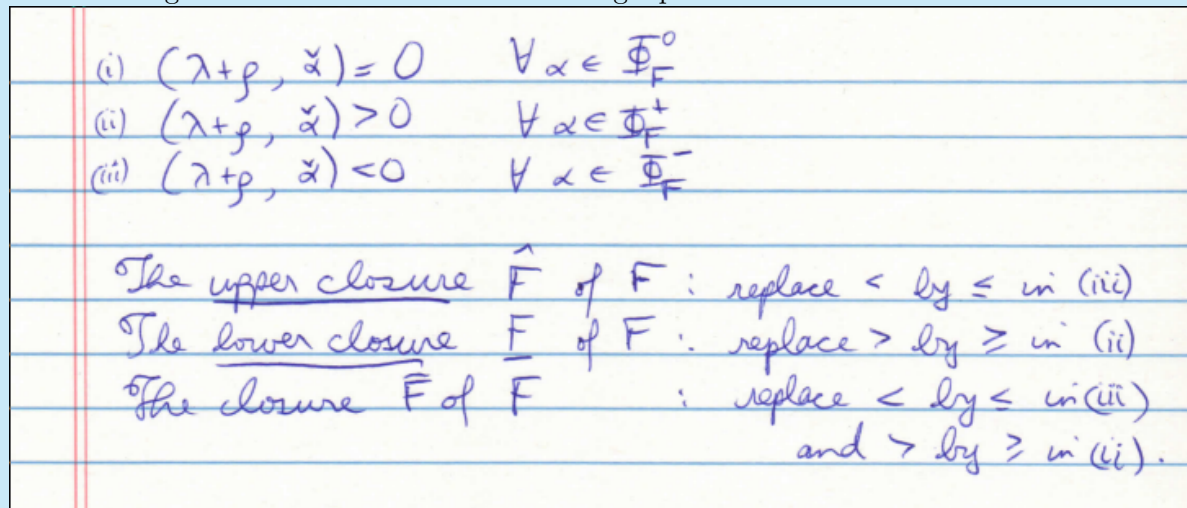 (i) (λ+ρ, α̌) = 0 ∀ α ∈ Φ_F^0
(ii) (λ+ρ, α̌) > 0 ∀ α ∈ Φ_F^+
(iii) (λ+ρ, α̌) < 0 ∀ α ∈ Φ_F^-
The upper closure F̂ of F : replace < by ≤ in (iii)
The lower closure F̲ of F : replace > by ≥ in (ii)
The closure F̄ of F : replace < by ≤ in (iii)
and > by ≥ in (ii).